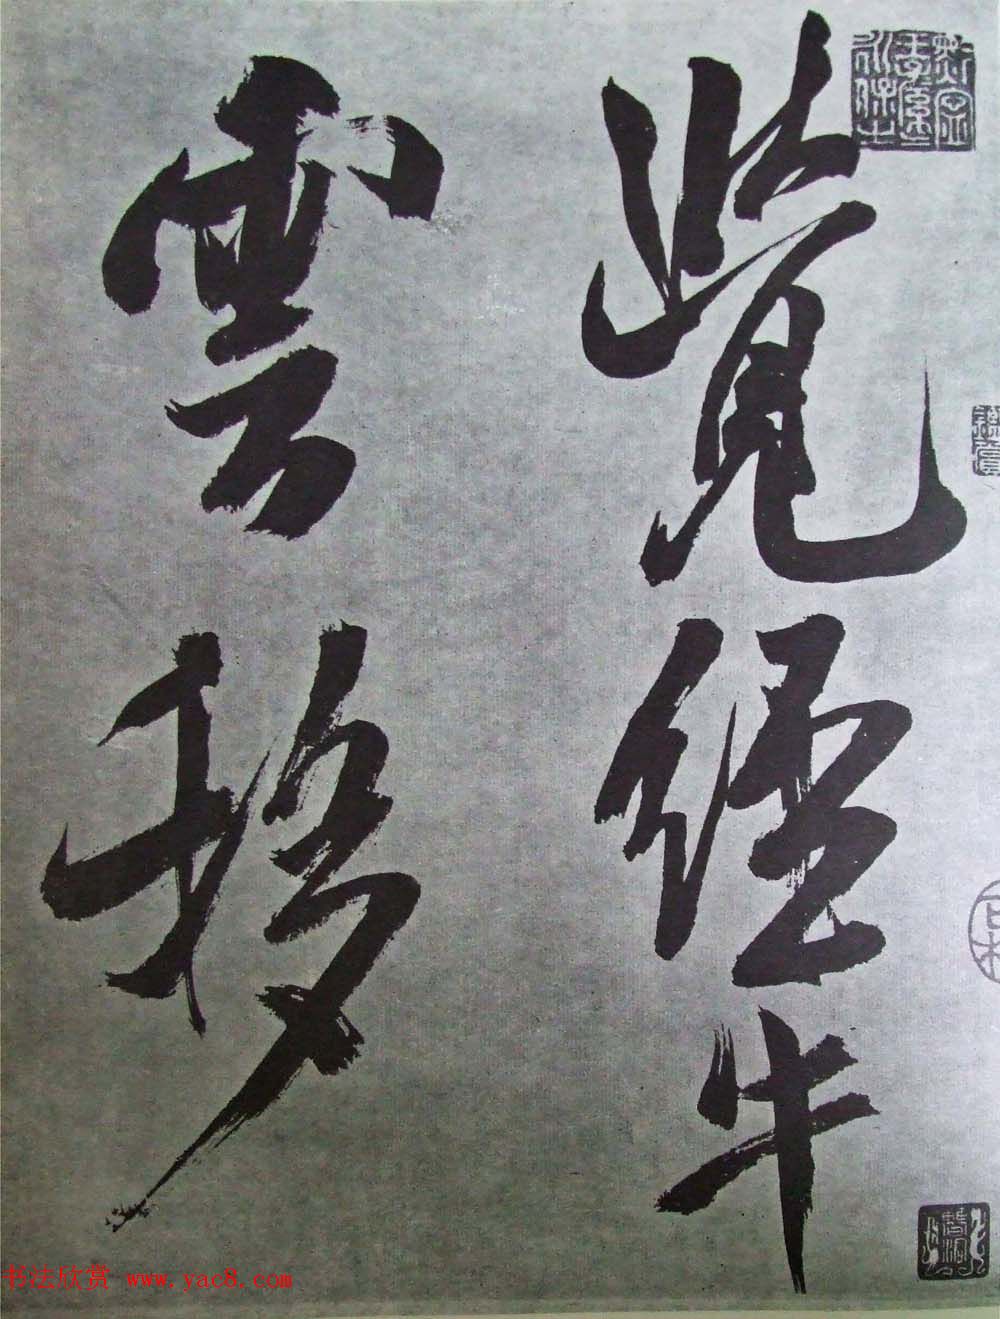 覺經牛
雲移
书法欣赏 www.yac8.com